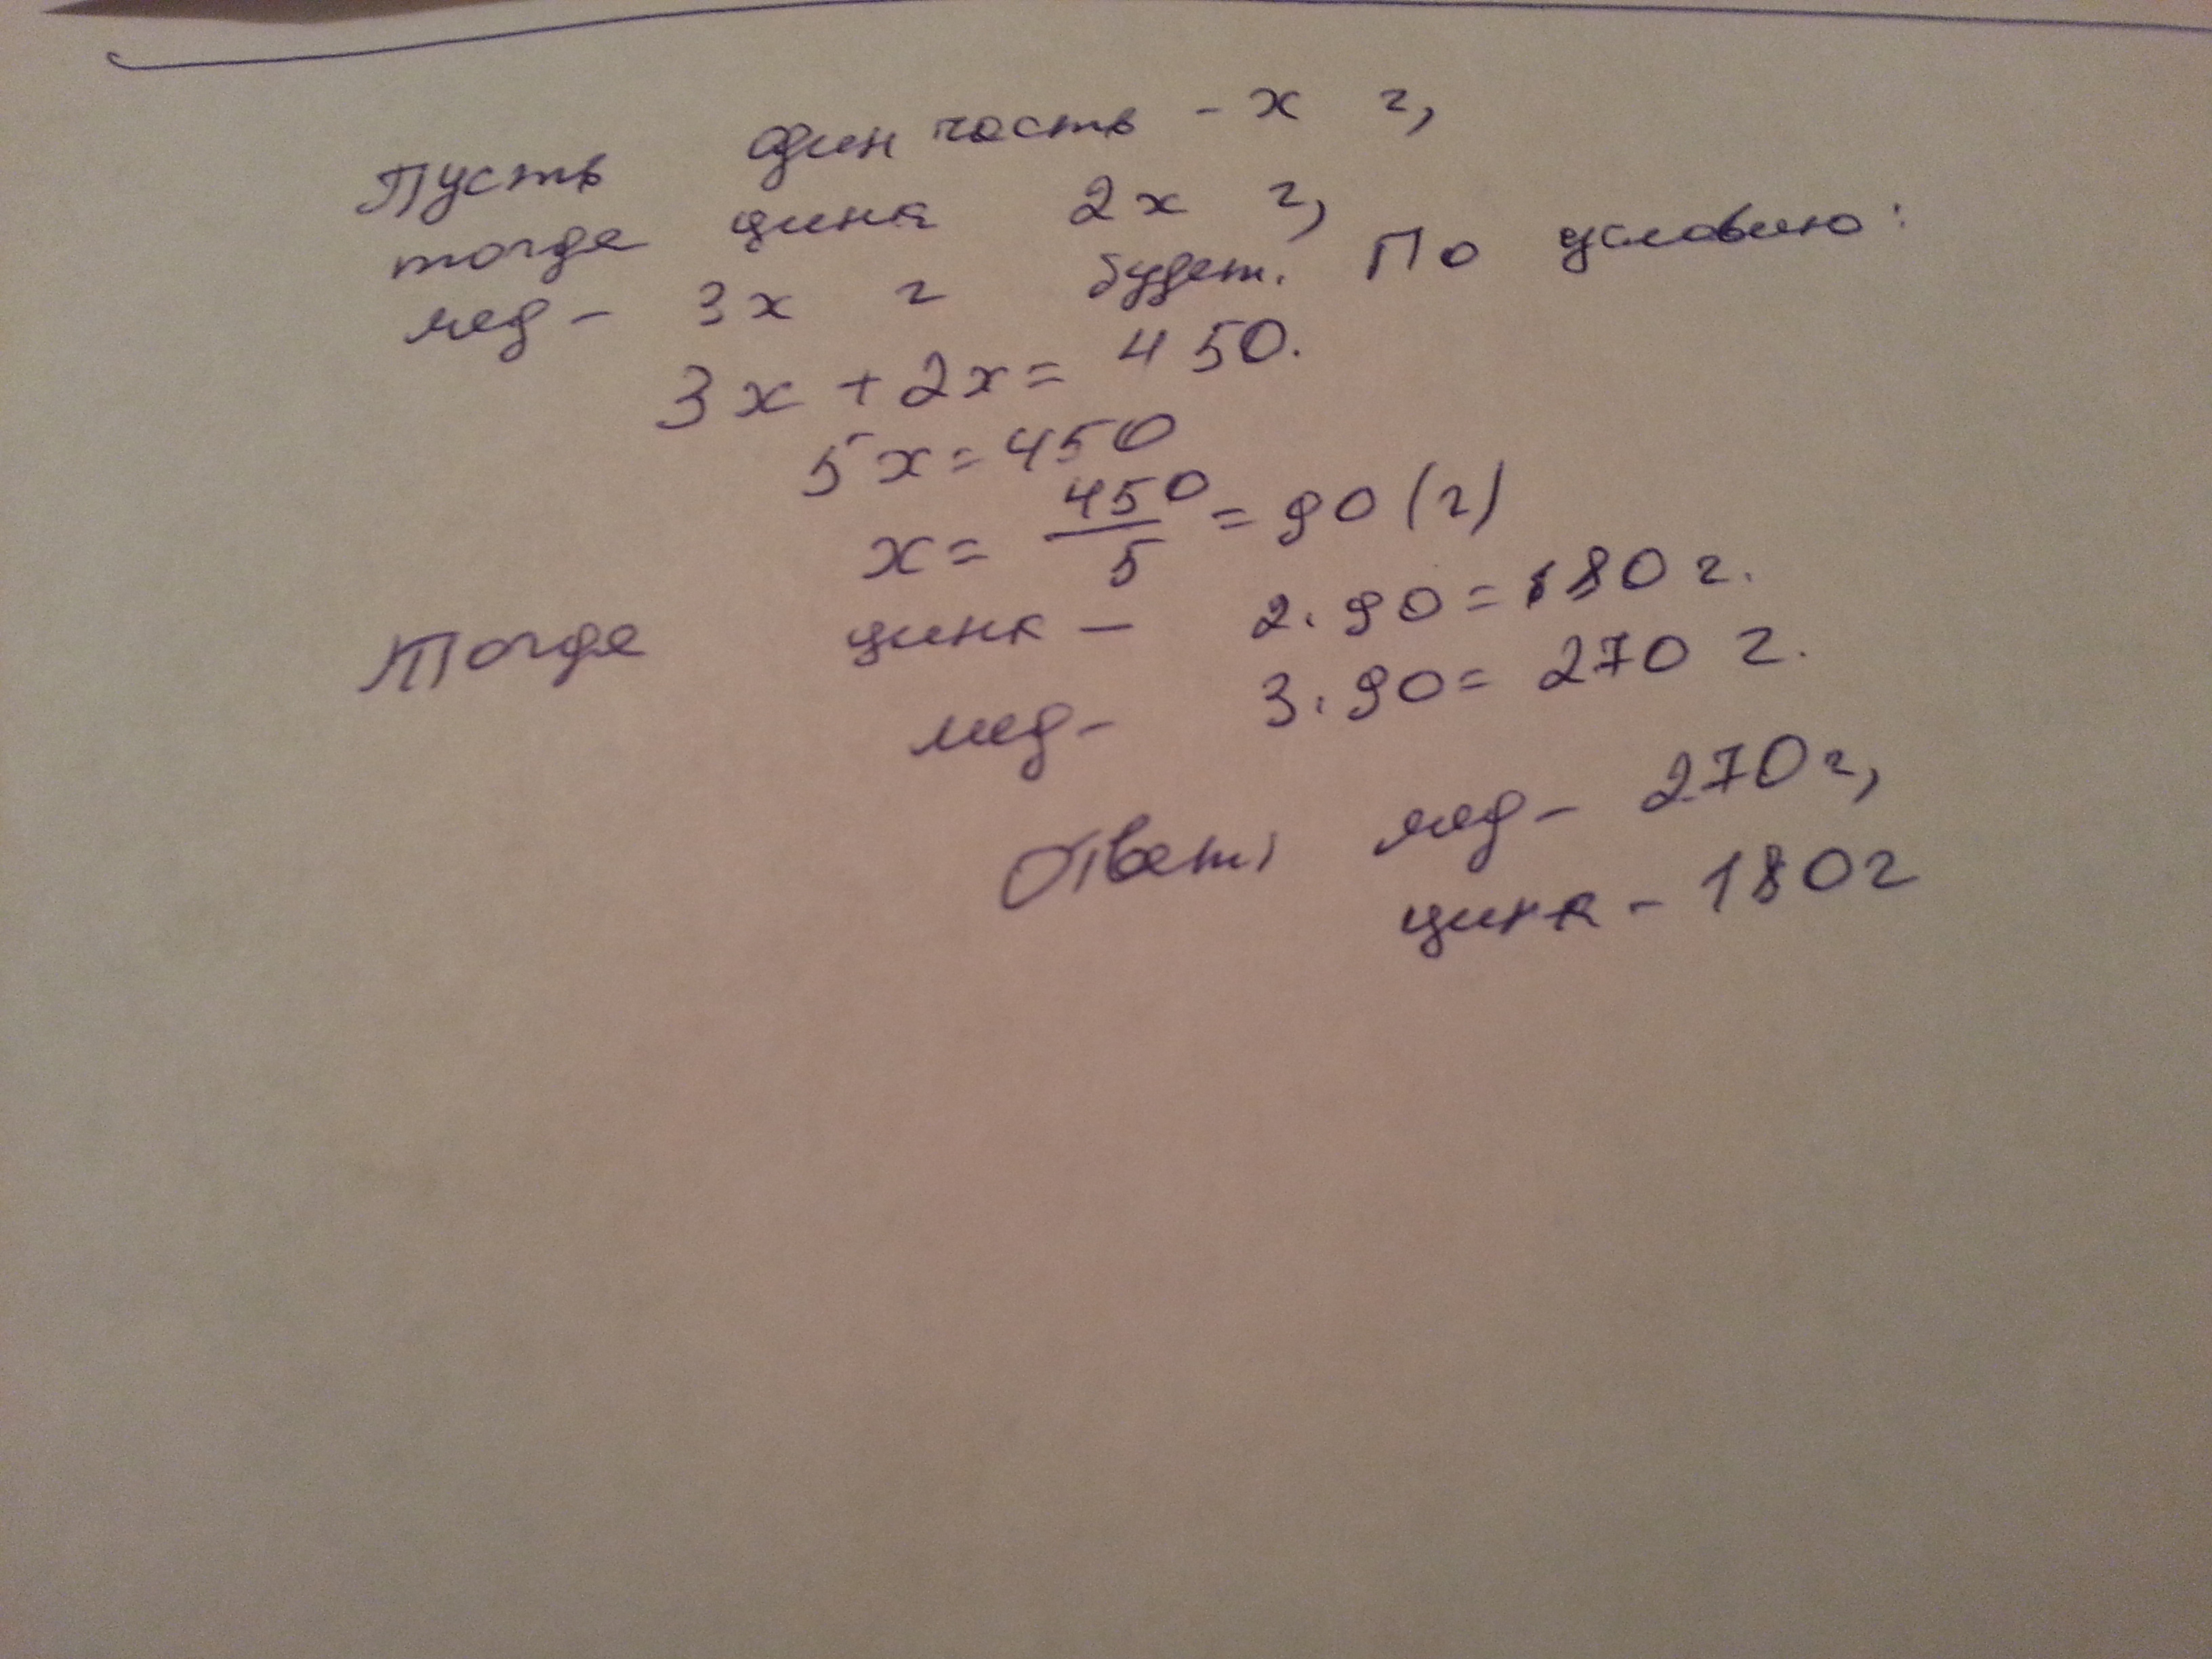 Пусть один часть - x г,
тогда цинк 2x г,
мед - 3x г будет. По условию:
3x + 2x = 450.
5x = 450
x = 450/5 = 90 (г)
Тогда цинк - 2 · 90 = 180 г.
мед - 3 · 90 = 270 г.
Ответ: мед - 270 г,
цинк - 180 г